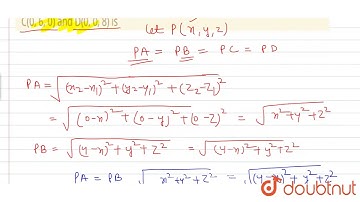 C(0, 6, 0) and D(0, 0, 8) is
Let P(x, y, z)
PA = PB = PC = PD
PA = √(x₂-x₁)² + (y₂-y₁)² + (z₂-z₁)²
= √(0-x)² + (0-y)² + (0-z)² = √x²+y²+z²
PB = √(4-x)² + y² + z² = √(4-x)² + y² + z²
PA = PB √x²+y²+z² = √(4-x)² + y² + z²
doubtnut